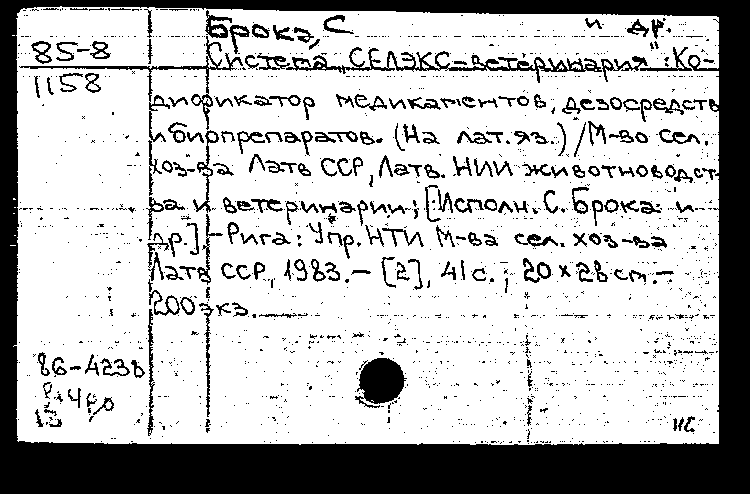 Брока, С и др.
85-8
Система „СЕЛЭКС-ветеринария": Ко-
1158
дификатор медикаментов, дезосредств
и биопрепаратов. (На лат. яз.) / М-во сел.
хоз-ва Латв ССР, Латв. НИИ животноводст-
ва и ветеринарии; [Исполн. С. Брока и
др.]. - Рига: Упр. НТИ М-ва сел. хоз-ва
Латв ССР, 1983. - [2], 41 с.; 20 x 28 см. -
200 экз.
86-4238
13